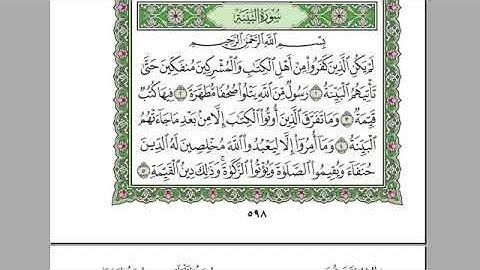 سُورَةُ البَيِّنَةِ
بِسْمِ اللَّهِ الرَّحْمَٰنِ الرَّحِيمِ
لَمْ يَكُنِ الَّذِينَ كَفَرُوا مِنْ أَهْلِ الْكِتَابِ وَالْمُشْرِكِينَ مُنفَكِّينَ حَتَّىٰ
تَأْتِيَهُمُ الْبَيِّنَةُ ١ رَسُولٌ مِّنَ اللَّهِ يَتْلُوا صُحُفًا مُّطَهَّرَةً ٢ فِيهَا كُتُبٌ
قَيِّمَةٌ ٣ وَمَا تَفَرَّقَ الَّذِينَ أُوتُوا الْكِتَابَ إِلَّا مِن بَعْدِ مَا جَاءَتْهُمُ
الْبَيِّنَةُ ٤ وَمَا أُمِرُوا إِلَّا لِيَعْبُدُوا اللَّهَ مُخْلِصِينَ لَهُ الدِّينَ
حُنَفَاءَ وَيُقِيمُوا الصَّلَوٰةَ وَيُؤْتُوا الزَّكَوٰةَ ۚ وَذَٰلِكَ دِينُ الْقَيِّمَةِ ٥
٥٩٨